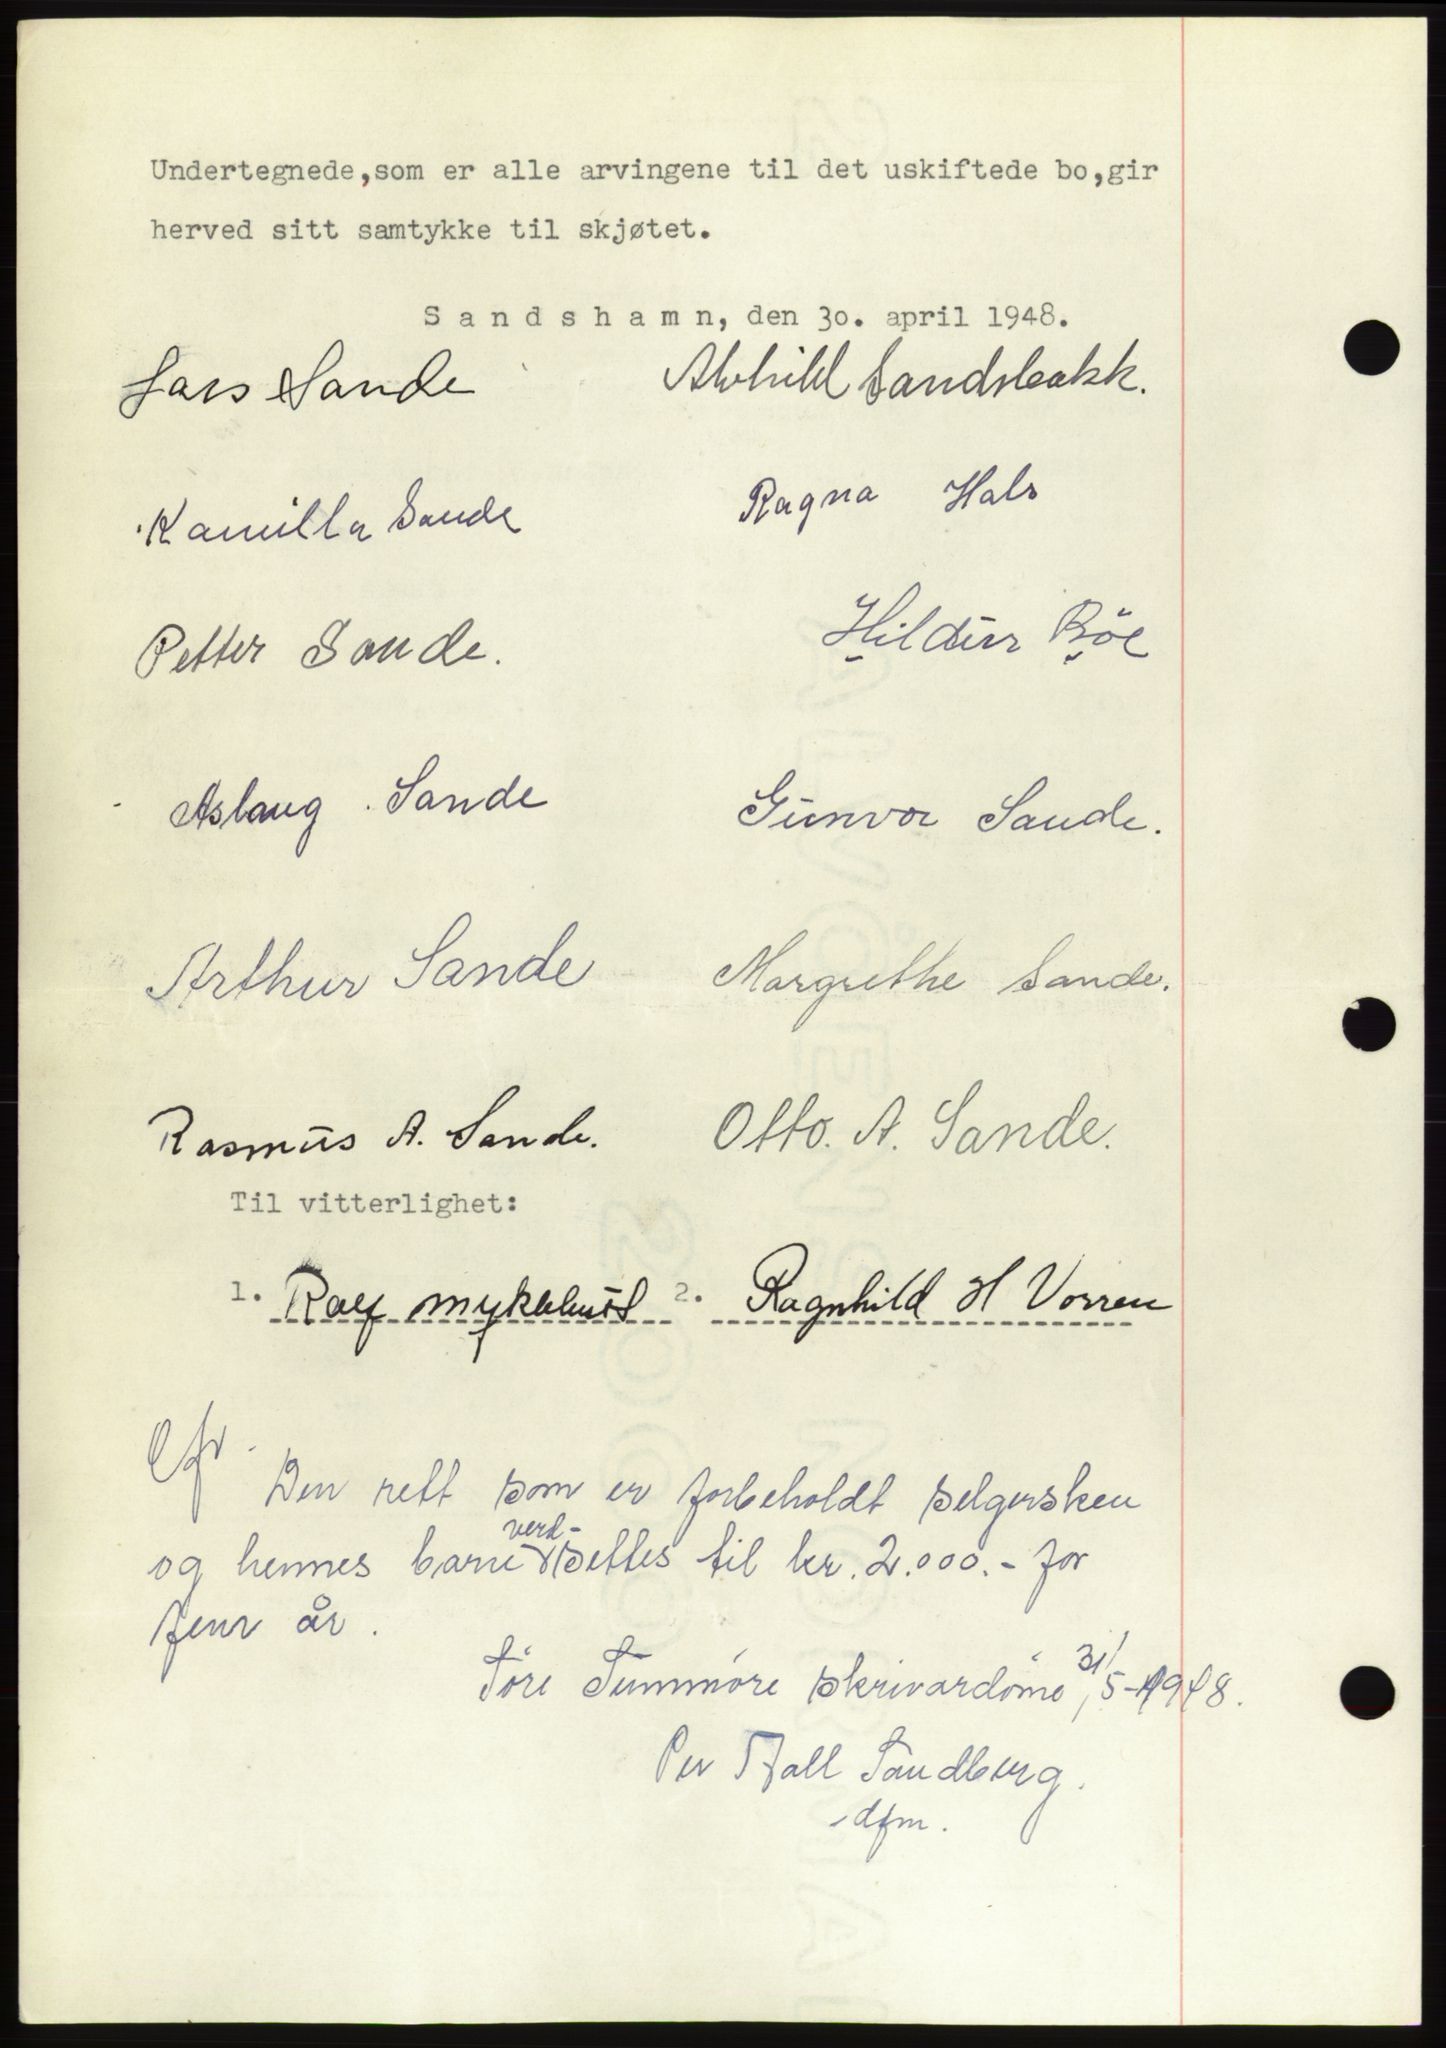 Undertegnede,som er alle arvingene til det uskiftede bo,gir
herved sitt samtykke til skjøtet.
S a n d s h a m n, den 30. april 1948.
Lars Sande
Alvhild Sandsbakk.
Kamilla Sande
Ragna Hals
Petter Sande.
Hildur Böe
Aslaug Sande
Gunvor Sande.
Arthur Sande
Margrethe Sande.
Rasmus A. Sande.
Otto. A. Sande.
Til vitterlighet:
1. Ralf Myklebust 2. Ragnhild H Vorren
Den rett som er forbeholdt selgersken
verd-
og hennes barn settes til kr. 2.000.- for
fem år.
Söre Sunnmöre skrivardöme, 31/5-1948.
Per Sandberg.
dfm.